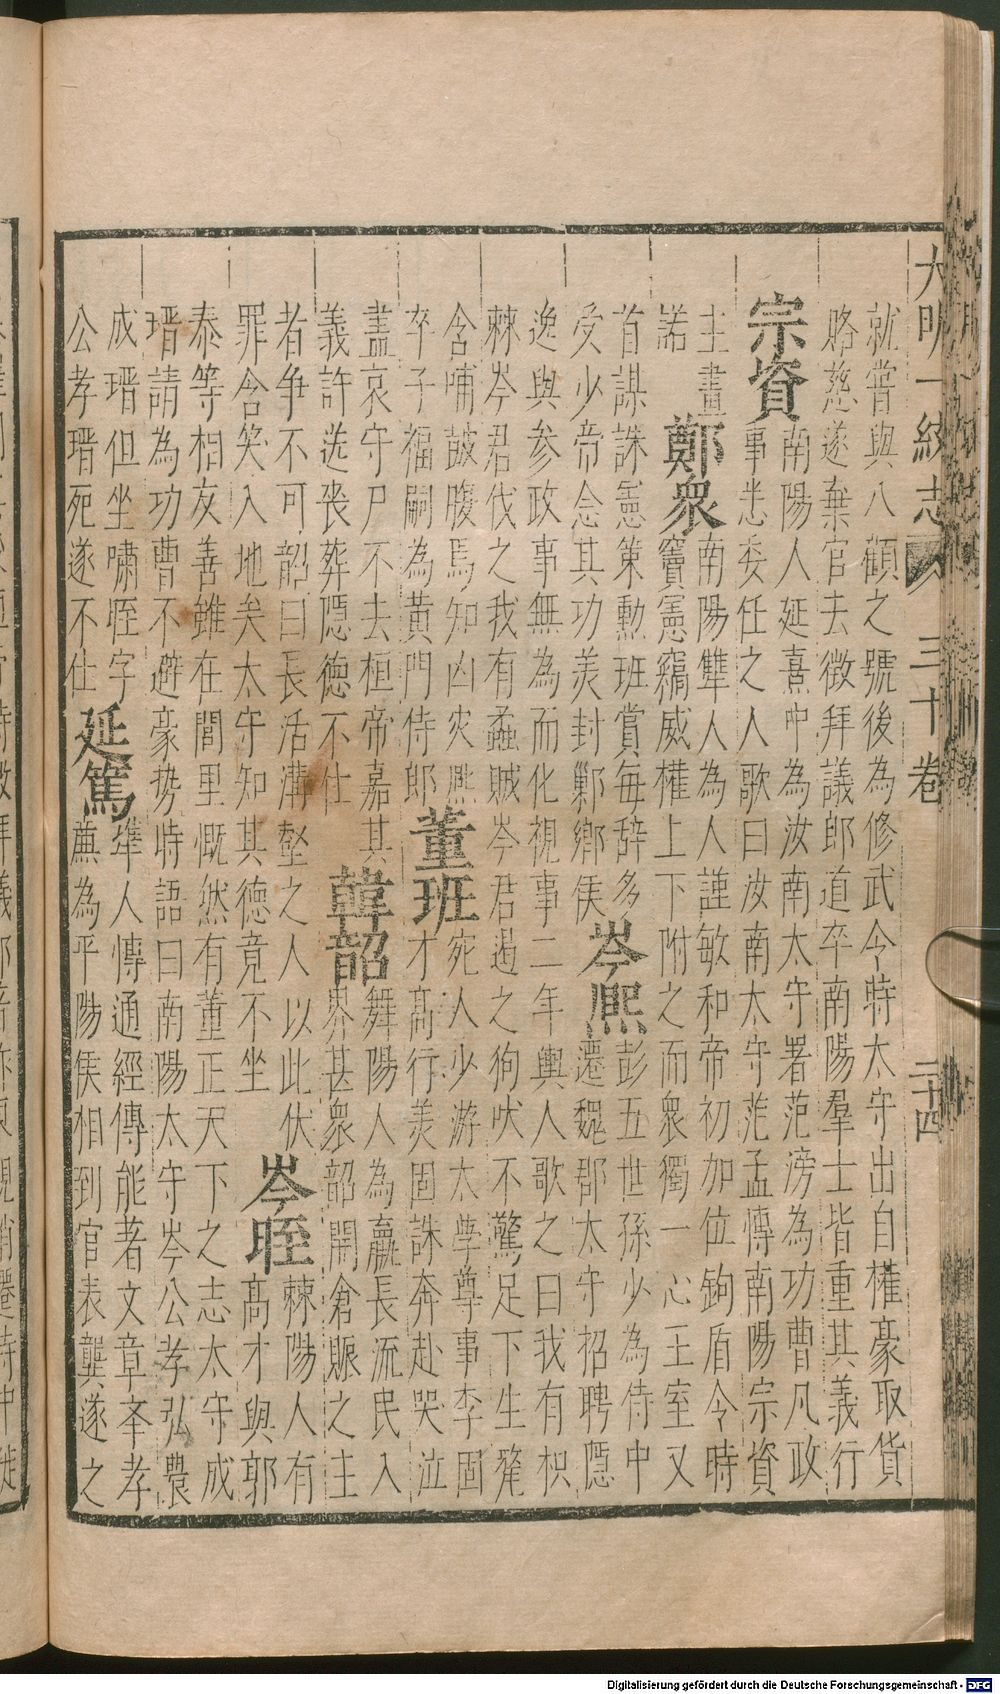 大明一統志 三十卷 二十四
就嘗與八顧之號後為修武令時太守出自權豪取貨
賂慈遂棄官去徵拜議郎道卒南陽羣士皆重其義行
宗資
南陽人延熹中為汝南太守署范滂為功曹凡政
事悉委任之人歌曰汝南太守范孟博南陽宗資
主畫
諾
鄭衆
南陽犨人為人謹敏和帝初加位鉤盾令時
竇憲竊威權上下附之而衆獨一心王室又
首謀誅憲策勳班賞每辞多
受少帝念其功羙封鄛鄉侯
岑熈
彭五世孫少為侍中
遷魏郡太守招聘隱
逸與參政事無為而化視事二年輿人歌之曰我有枳
棘岑君伐之我有蟊賊岑君遏之狗吠不驚足下生氂
含哺鼓腹焉知凶灾熈
卒子福嗣為黃門侍郎
董班
宛人少游太學尊事李固
才高行羙固誅奔赴哭泣
盖哀守尸不去桓帝嘉其
義許送丧葬隱德不仕
韓韶
舞陽人為嬴長流民入
界甚衆韶開倉賑之主
者争不可韶曰長活溝壑之人以此伏
罪含笑入地矣太守知其德竟不坐
岑晊
棘陽人有
高才與郭
泰等相友善雖在閭里慨然有董正天下之志太守成
瑨請為功曹不避豪势時語曰南陽太守岑公孝弘農
成瑨但坐嘯晊字
公孝瑨死遂不仕
延篤
犨人博通經傳能著文章举孝
廉為平陽侯相到官表龔遂之
Digitalisierung gefördert durch die Deutsche Forschungsgemeinschaft - DFG